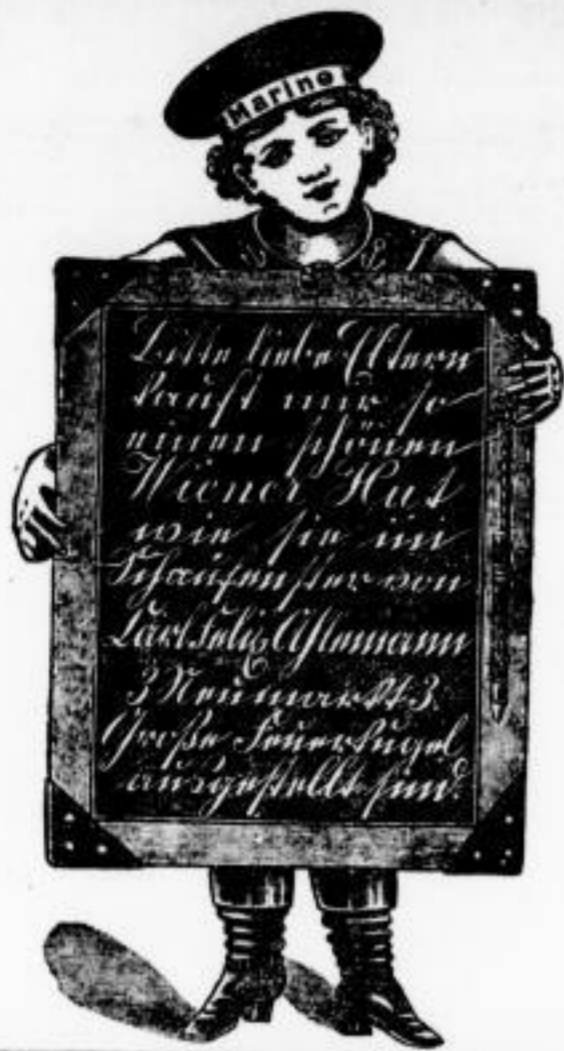 Marine
Bitte liebe Eltern
kauft mir so
einen schönen
Wiener Hut
wie sie im
Schaufenster von
Carl Felix Ahlemann
3 Neumarkt 3.
Große Feuerkugel
ausgestellt sind.